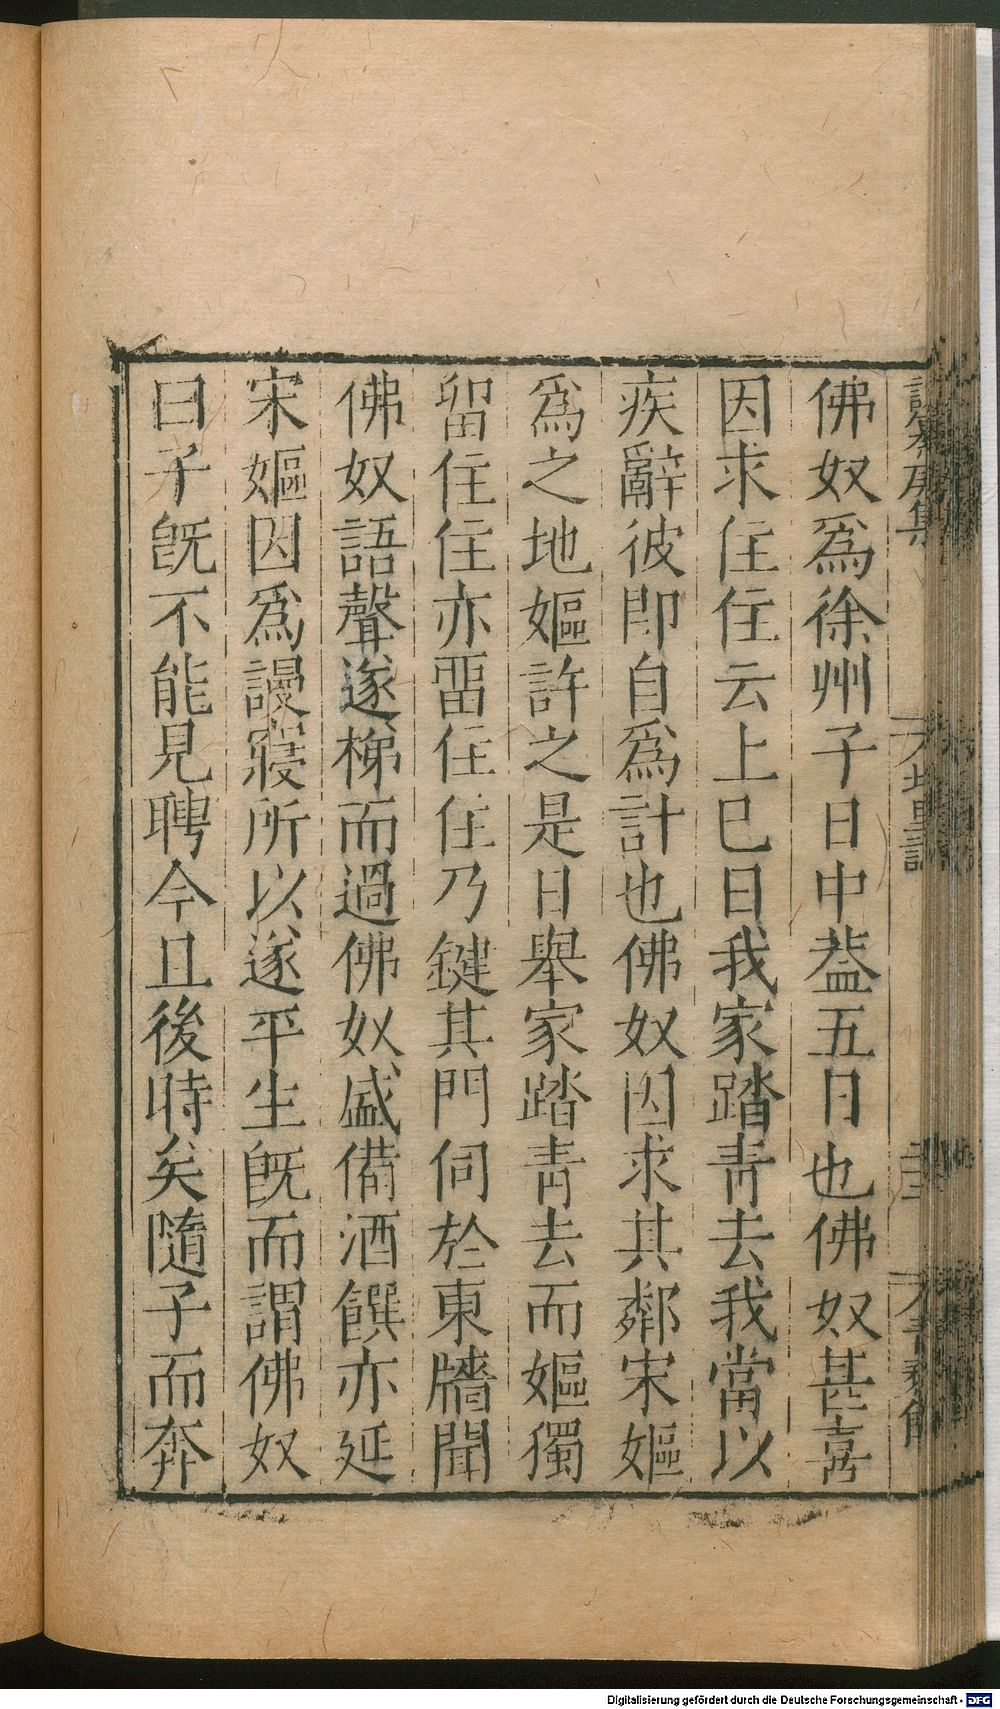 佛奴爲徐州子日中葢五日也佛奴甚喜
因求住住云上巳日我家踏青去我當以
疾辭彼即自爲計也佛奴因求其鄰宋嫗
爲之地嫗許之是日舉家踏青去而嫗獨
留住住亦畱住住乃鍵其門伺於東牆聞
佛奴語聲遂梯而過佛奴盛備酒饌亦延
宋嫗因爲謾寢所以遂平生旣而謂佛奴
曰子旣不能見聘今且後時矣隨子而奔
Digitalisierung gefördert durch die Deutsche Forschungsgemeinschaft - DFG